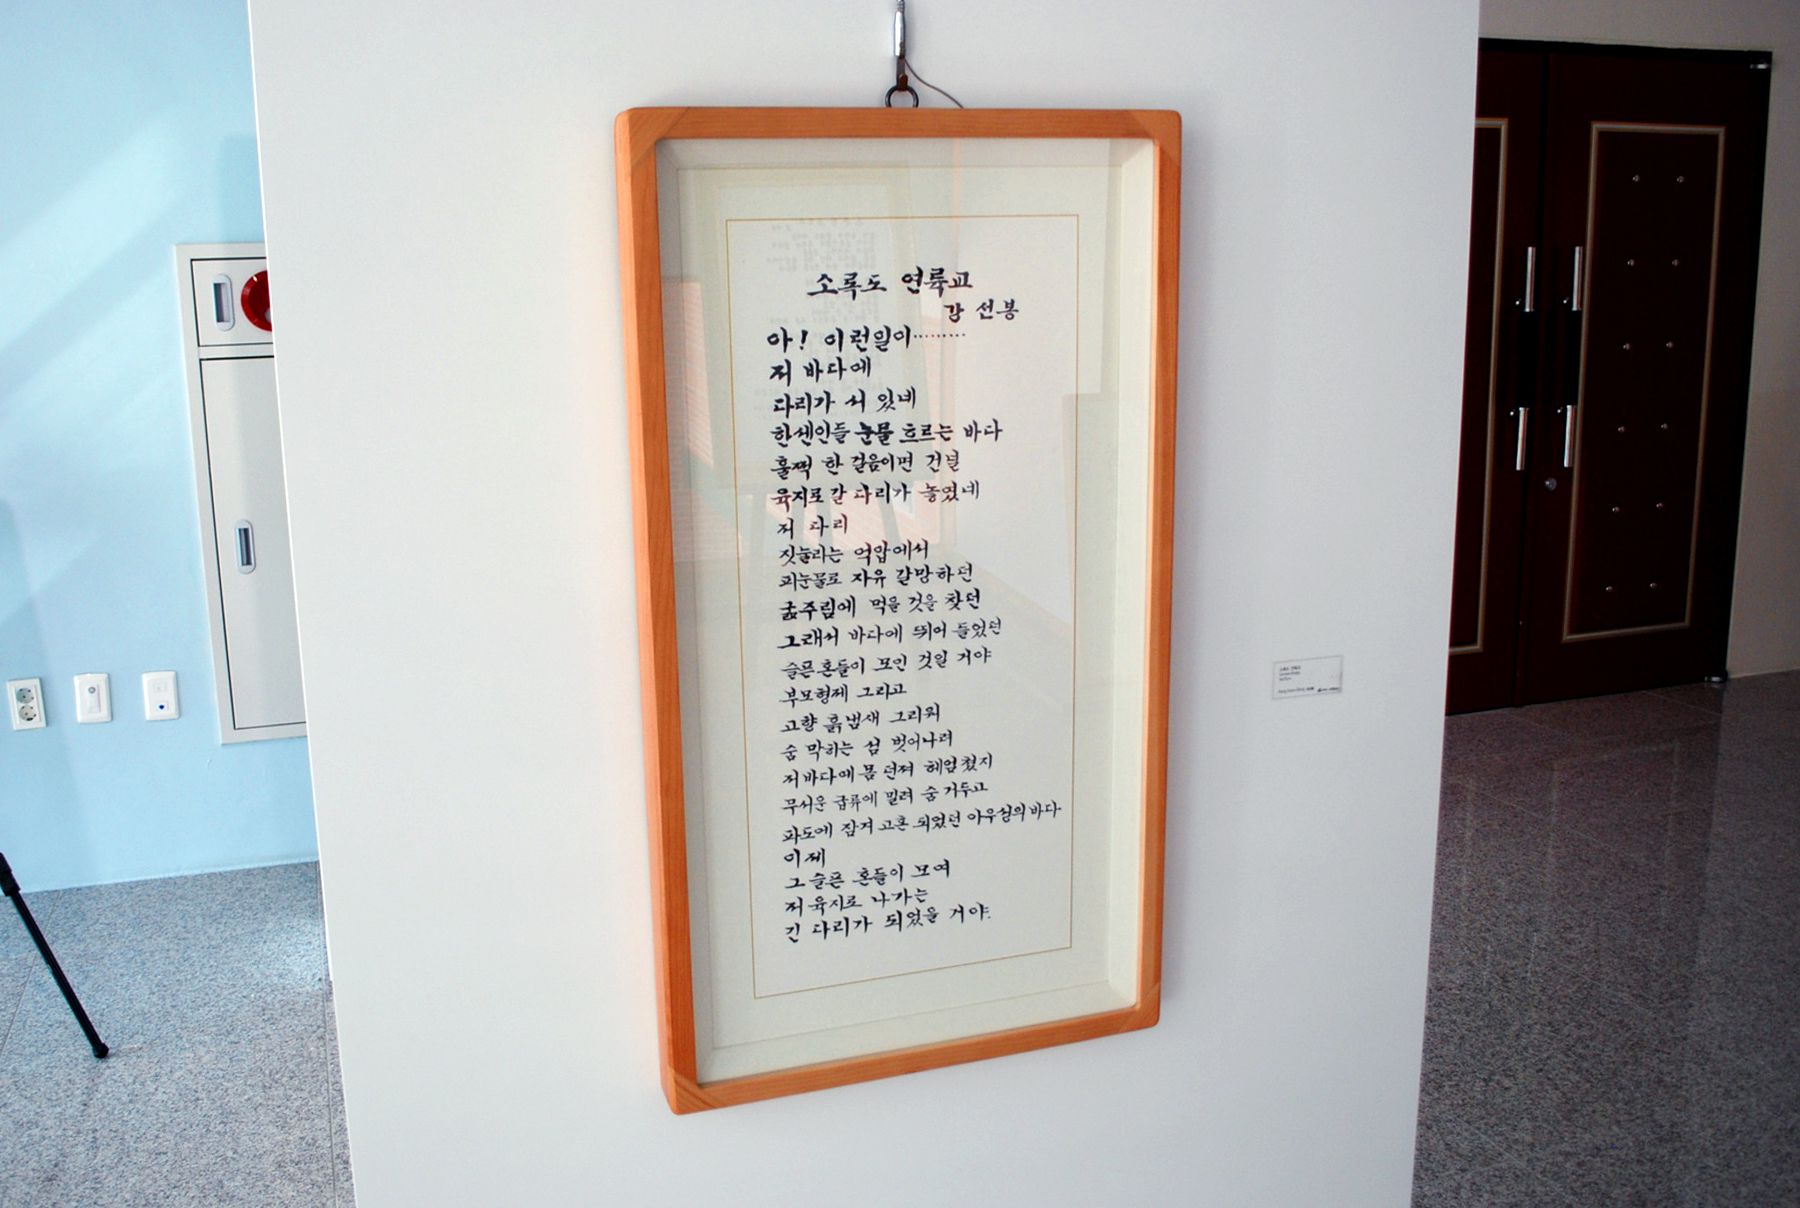 소록도 연륙교
강 선봉
아! 이런일이………
저 바다에
다리가 서 있네
한센인들 눈물 흐르는 바다
훌쩍 한 걸음이면 건널
육지로 갈 다리가 놓였네
저 다리
짓눌리는 억압에서
피눈물로 자유 갈망하던
굶주림에 먹을 것을 찾던
그래서 바다에 뛰어 들었던
슬픈혼들이 모인 것일 거야
부모형제 그리고
고향 흙냄새 그리워
숨 막히는 섬 벗어나려
저바다에 몸 던져 헤엄쳤지
무서운 급류에 밀려 숨 거두고
파도에 잠겨 고혼 되었던 아우성의 바다
이제
그 슬픈 혼들이 모여
저 육지로 나가는
긴 다리가 되었을 거야.